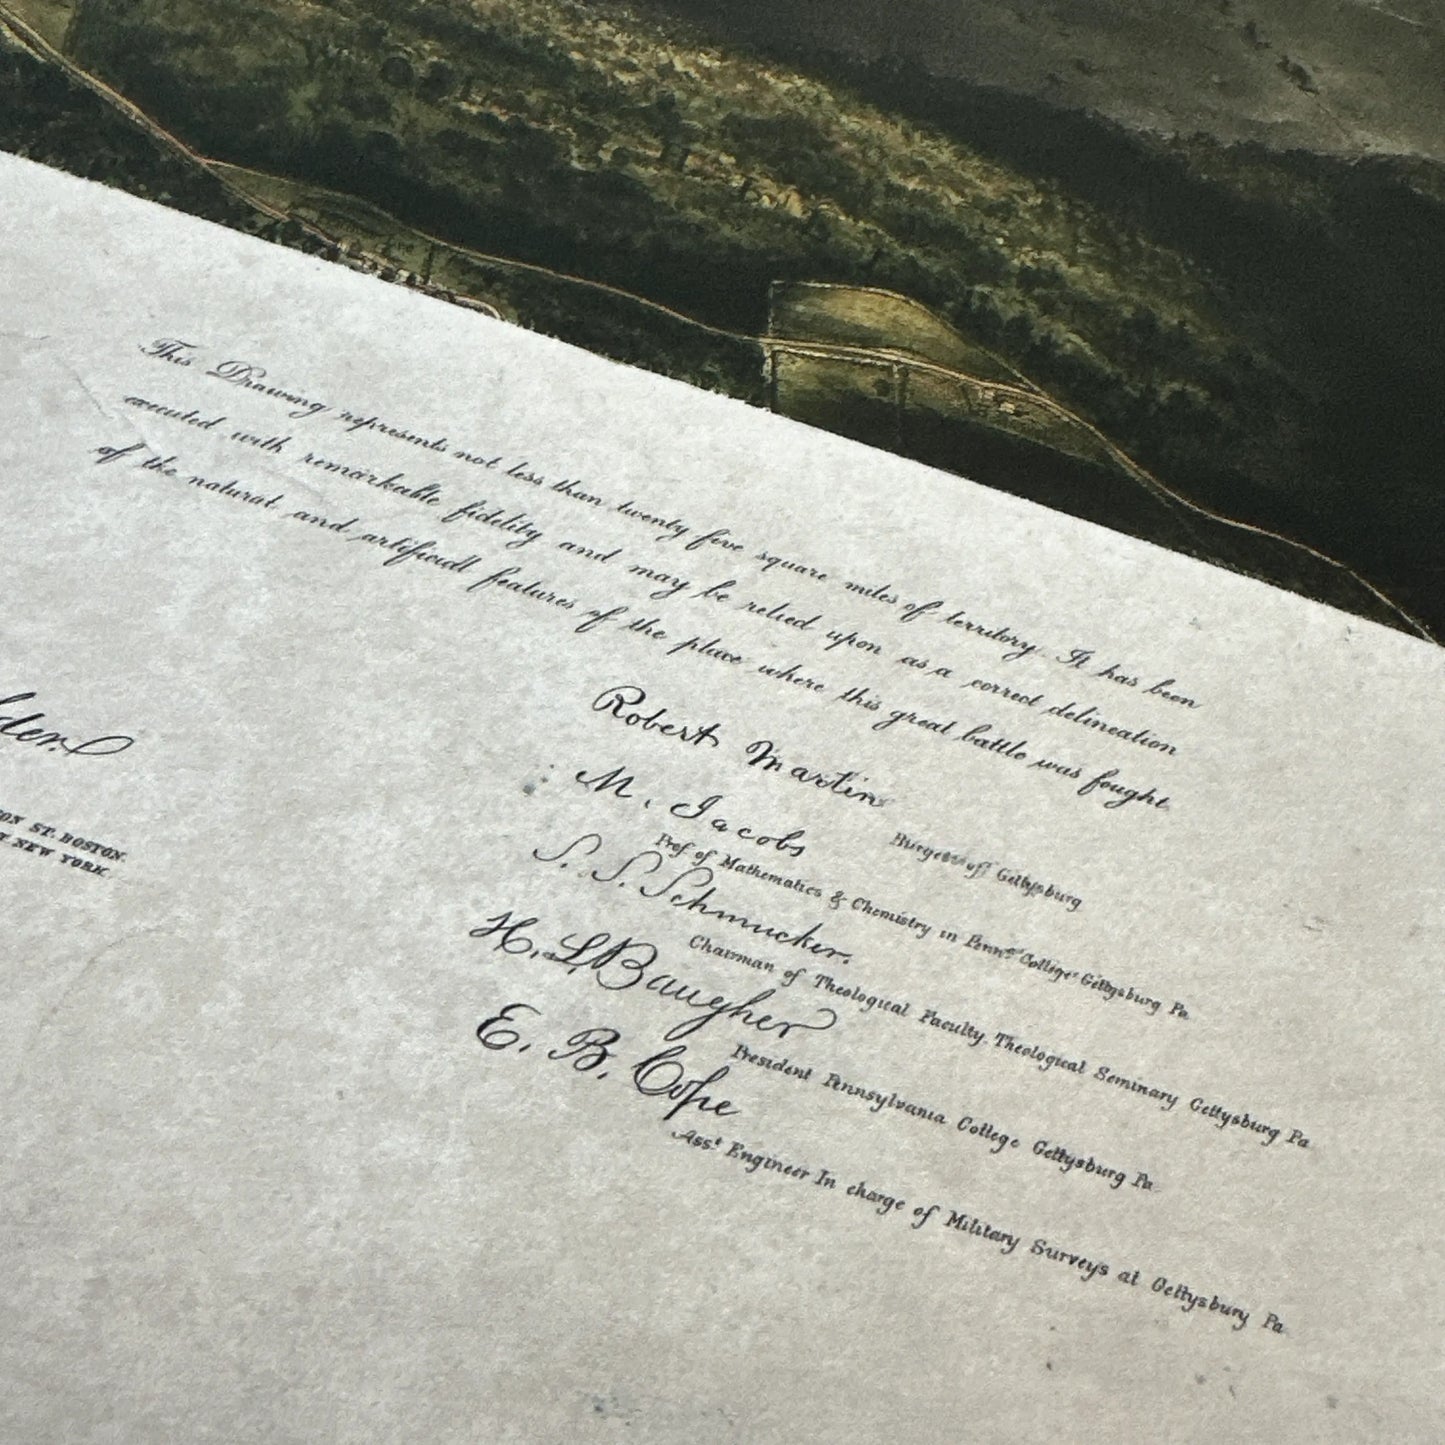 This Drawing represents not less than twenty five square miles of territory. It has been
executed with remarkable fidelity and may be relied upon as a correct delineation
of the natural and artificial features of the place where this great battle was fought.
Robert Martin
Burgess of Gettysburg
M. Jacobs
Prof of Mathematics & Chemistry in Penna College Gettysburg Pa
S. S. Schmucker.
Chairman of Theological Faculty, Theological Seminary Gettysburg Pa
H. L. Baugher
President Pennsylvania College Gettysburg Pa
E. B. Cope
Asst Engineer In charge of Military Surveys at Gettysburg Pa
ON ST. BOSTON.
NEW YORK.